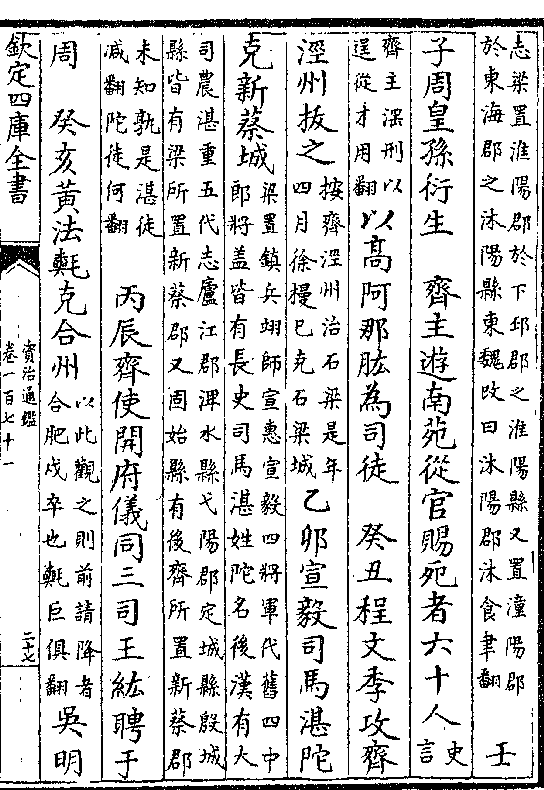 志梁置淮陽郡於下邳郡之淮陽縣又置潼陽郡
於東海郡之沐陽縣東魏改曰沐陽郡沐食聿翻
壬
子周皇孫衍生　齊主遊南苑從官賜死者六十人
史
言
齊主淫刑以
逞從才用翻
以髙阿那肱為司徒　癸丑程文季攻齊
涇州拔之
按齊涇州治石梁是年
四月徐槾已克石梁城
乙卯宣毅司馬湛陀
克新蔡城
梁置鎮兵翊師宣惠宣毅四將軍代舊四中
郎將盖皆有長史司馬湛姓陀名後漢有大
司農湛重五代志廬江郡渒水縣弋陽郡定城縣殷城
縣皆有梁所置新蔡郡又固始縣有後齊所置新蔡郡
未知孰是湛徒
减翻陀徒何翻
丙辰齊使開府儀同三司王紘聘于
周　癸亥黄法𣰋克合州
以此觀之則前請降者
合肥戍卒也𣰋巨俱翻
吳明
欽定四庫全書
資治通鑑
卷一百七十一
二十七